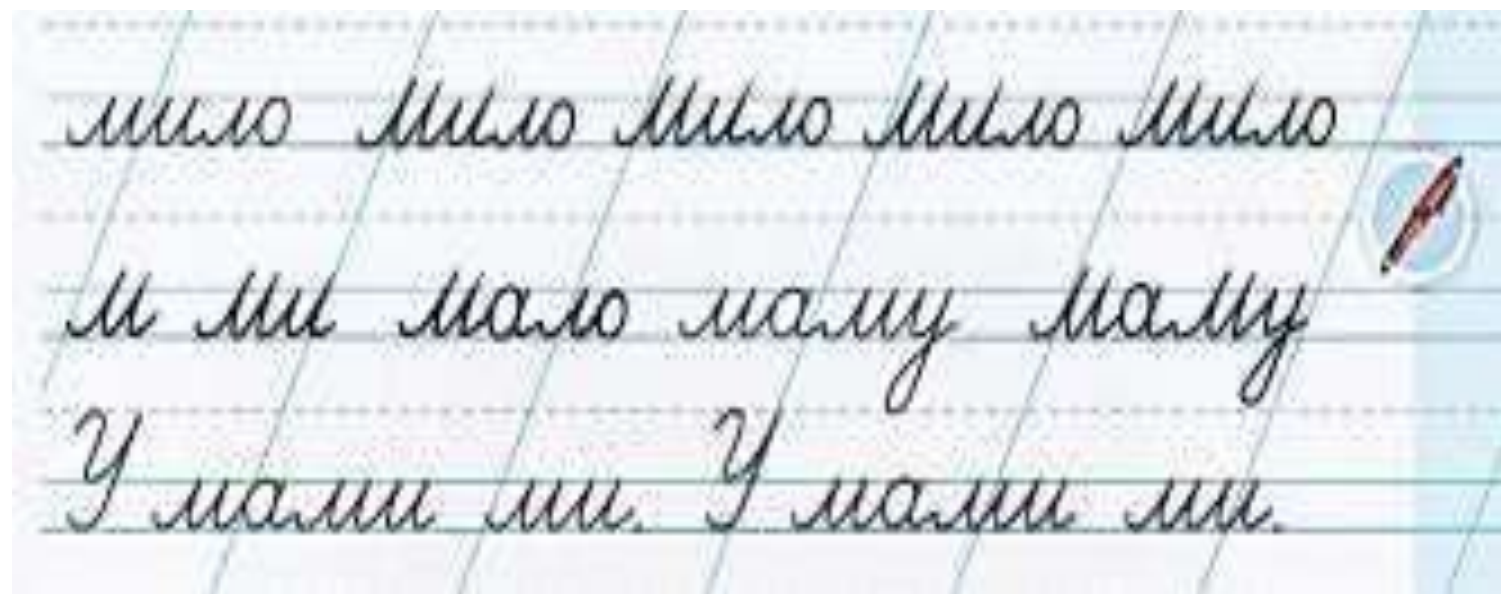 мило мило мило мило мило
м ми мало маму маму
У мами ми. У мами ми.